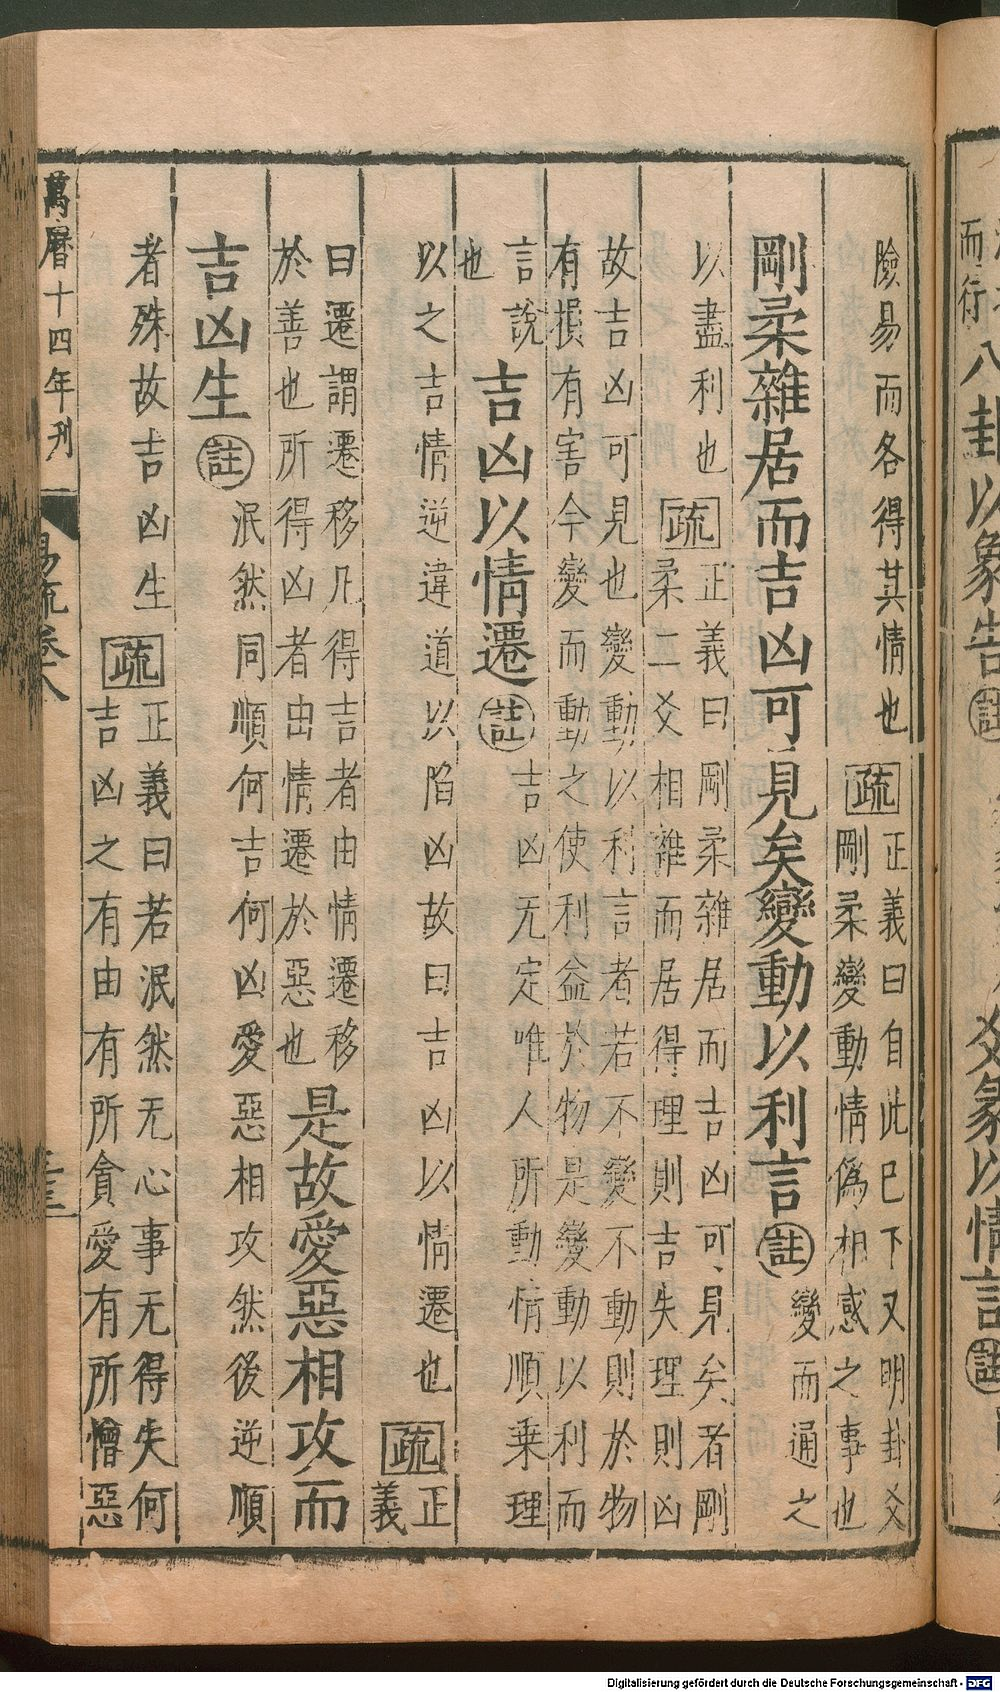 而行
八卦以象告註
爻彖以情言註
險易而各得其情也疏正義曰自此已下又明卦爻
剛柔變動情偽相感之事也
剛柔雜居而吉凶可見矣變動以利言註變而通之
以盡利也疏正義曰剛柔雜居而吉凶可見矣者剛
柔二爻相雜而居得理則吉失理則凶
故吉凶可見也變動以利言者若不變不動則於物
有損有害今變而動之使利益於物是變動以利而
言說
也
吉凶以情遷註吉凶无定唯人所動情順乘理
以之吉情逆違道以陷凶故曰吉凶以情遷也疏正
義
曰遷謂遷移凡得吉者由情遷移
於善也所得凶者由情遷於惡也
是故愛惡相攻而
吉凶生註泯然同順何吉何凶愛惡相攻然後逆順
者殊故吉凶生疏正義曰若泯然无心事无得失何
吉凶之有由有所貪愛有所憎惡
萬曆十四年刊
易疏卷八
Digitalisierung gefördert durch die Deutsche Forschungsgemeinschaft - DFG